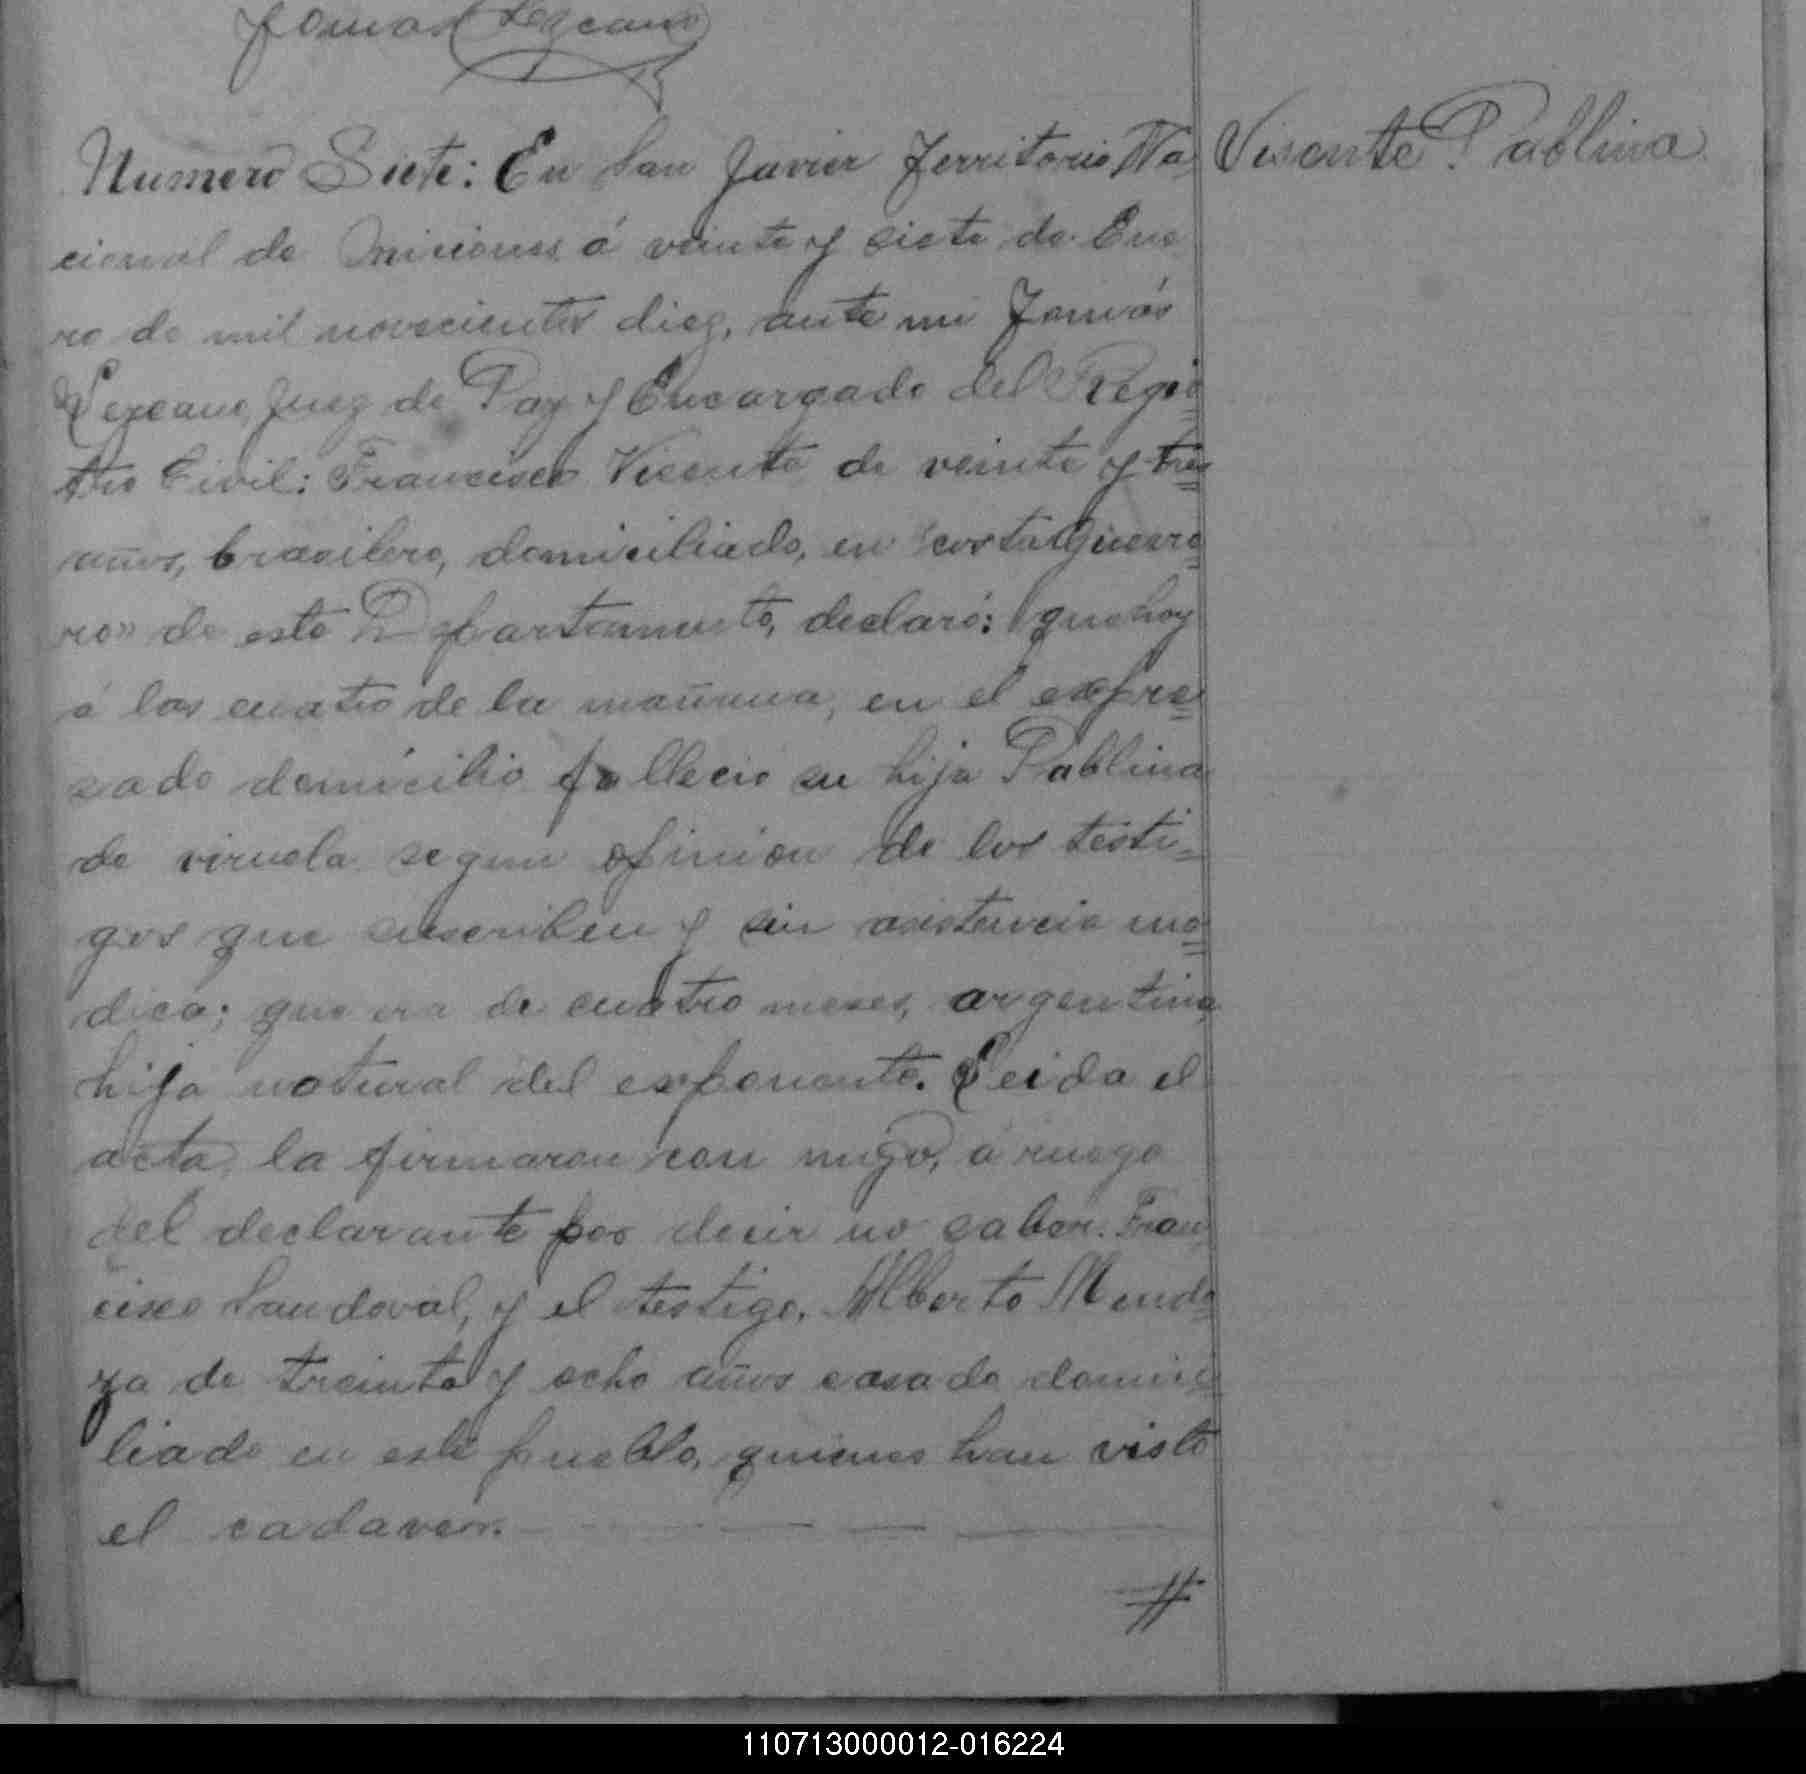 Tomás Lezcano
Vicente Pablina
Numero Siete: En San Javier Territorio Na
cional de Misiones á veinte y siete de Ene
ro de mil novecientos diez, ante mi Tomás
Lezcano, Juez de Paz y Encargado del Regis
tro Civil: Francisco Vicente de veinte y tres
años, brasilero, domiciliado, en "costa Guerre
ro" de este Departamento, declaró: que hoy
á las cuatro de la mañana, en el expre
sado domicilio fallecio su hija Pablina
de viruela segun opinion de los testi=
gos que suscriben y sin asistencia me
dica; que era de cuatro meses, argentina,
hija natural del exponente. Leida el
acta, la firmaron con migo, á ruego
del declarante por decir no saber. Fran
cisco Sandoval, y el testigo, Alberto Mendo
za de treinta y ocho años casado domici
liado en este pueblo, quienes han visto
el cadaver.
110713000012-016224